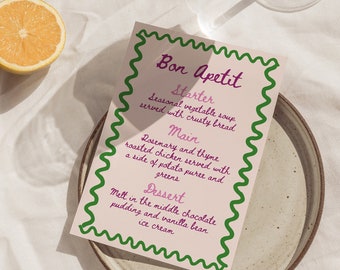 Bon Apetit
Starter
Seasonal vegetable soup
served with crusty bread
Main
Rosemary and thyme
roasted chicken served with
a side of potato puree and
greens
Dessert
Melt in the middle chocolate
pudding and vanilla bean
ice cream